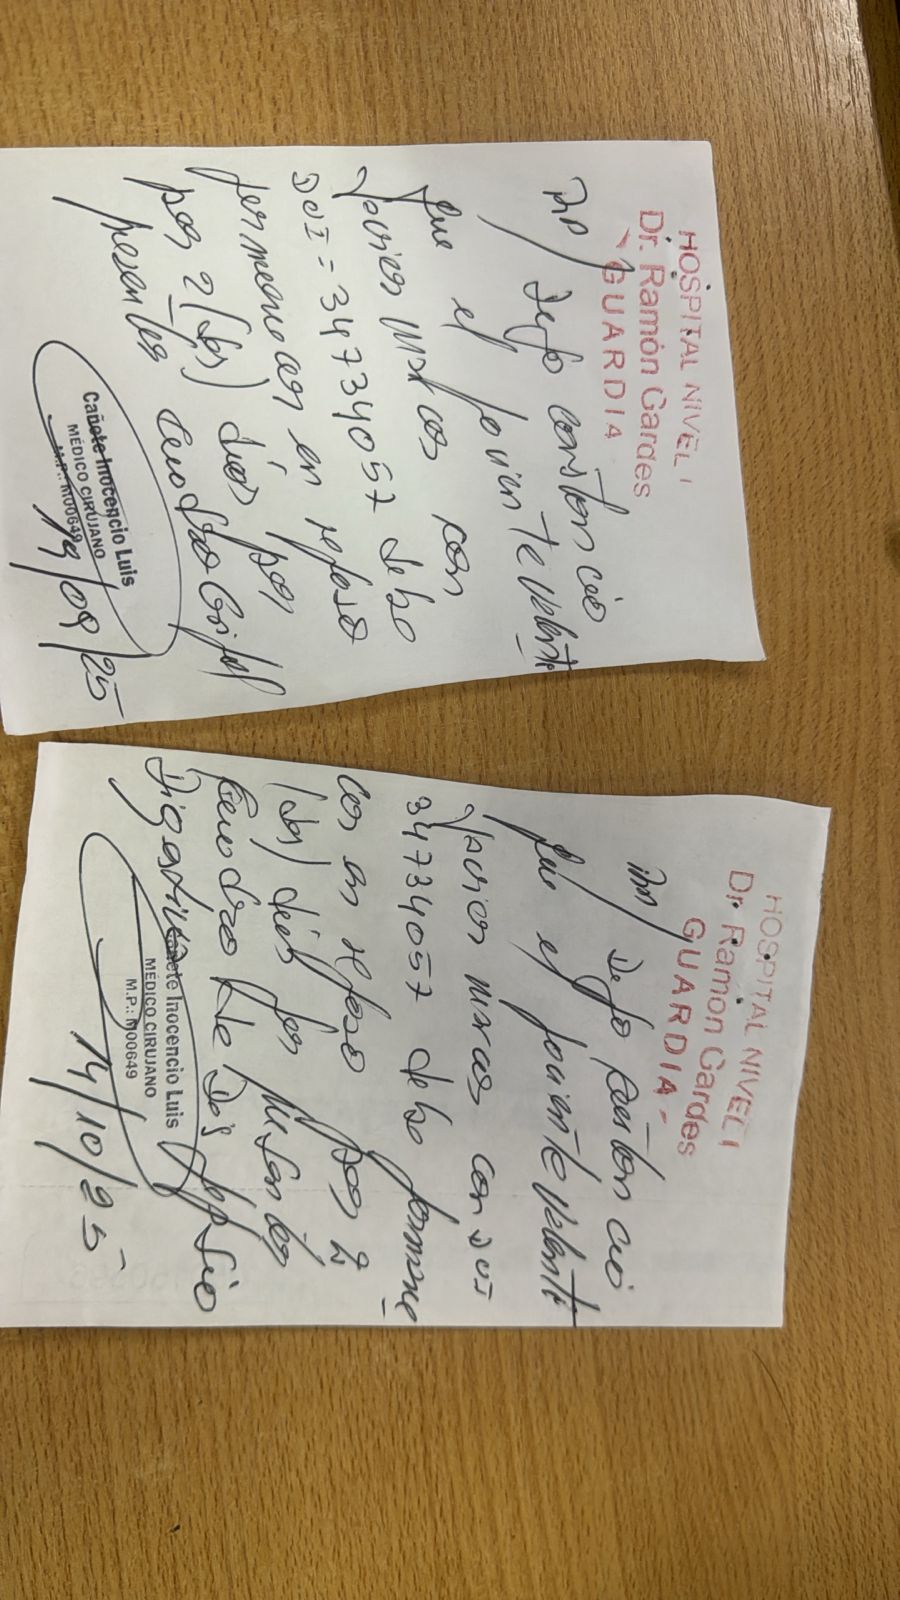 HOSPITAL NIVEL I
Dr. Ramón Gardes
GUARDIA
Dejo constancia
que el paciente
con
DUI = 34734057 debe
permanecer en reposo
por 2 (dos) días por
cuadro
Cañete Inocencio Luis
MÉDICO CIRUJANO
M.P.: M00649
/09/25
HOSPITAL NIVEL I
Dr. Ramón Gardes
GUARDIA -
Dejo constancia
que el paciente
con
34734057 debe permane
cer en reposo por 2
(dos) días por
cuadro de
Cañete Inocencio Luis
MÉDICO CIRUJANO
M.P.: M00649
14/10/25